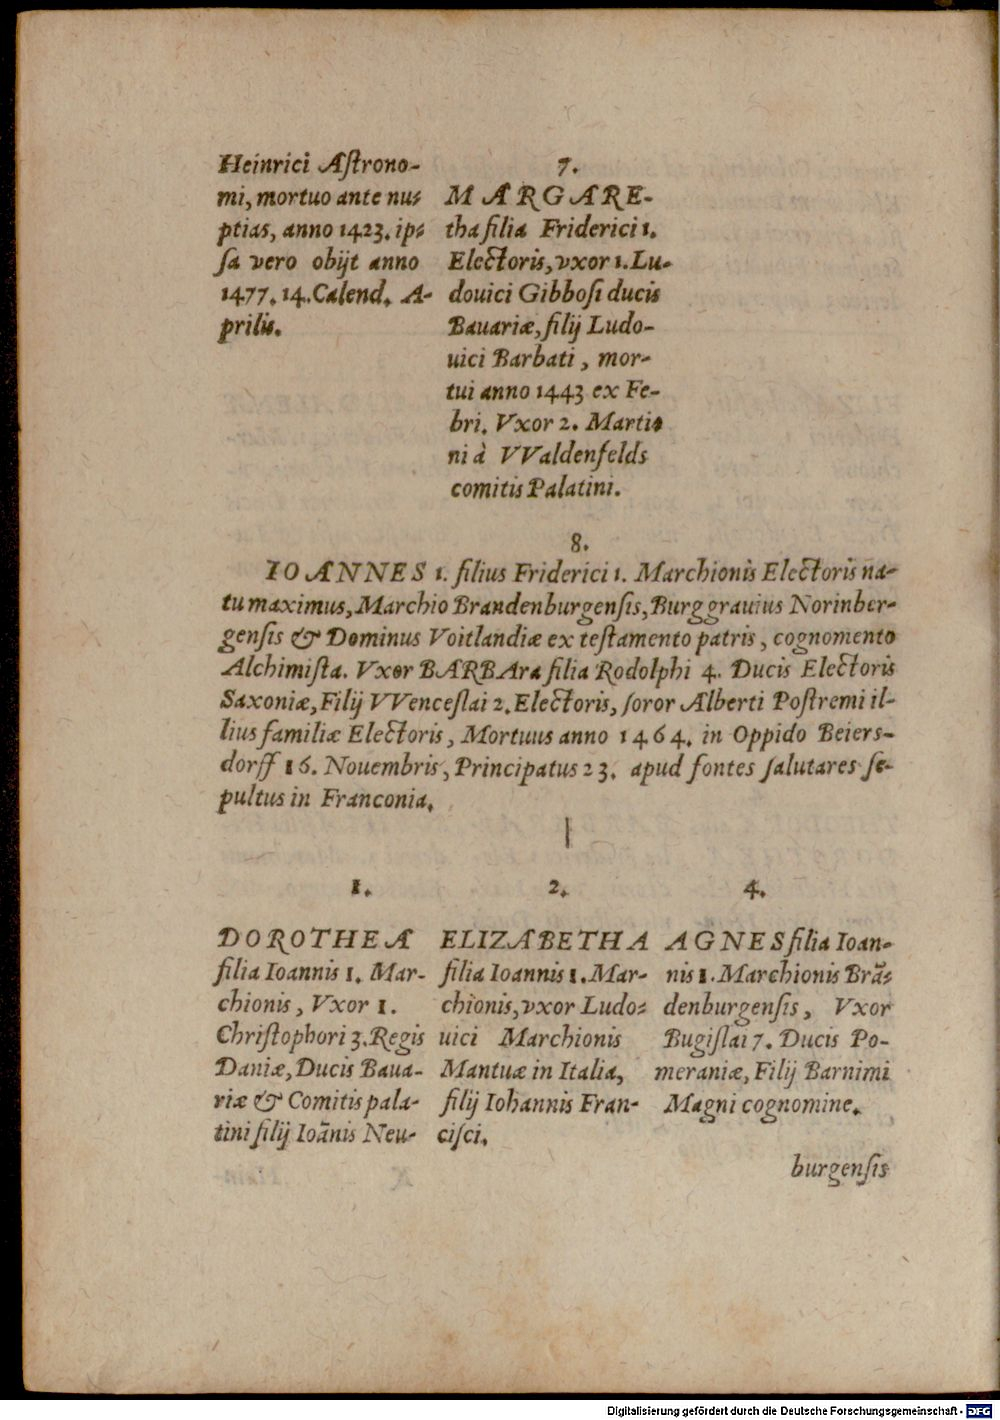 Heinrici Aſtrono-
mi, mortuo ante nu⸗
ptias, anno 1423. ip⸗
ſa vero obijt anno
1477. 14. Calend. A-
prilis.
7.
MARGARE-
tha filia Friderici 1.
Electoris, vxor 1. Lu-
douici Gibboſi ducis
Bauariæ, filij Ludo-
uici Barbati, mor-
tui anno 1443 ex Fe-
bri. Vxor 2. Marti⸗
ni à VValdenfelds
comitis Palatini.
8.
IOANNES 1. filius Friderici 1. Marchionis Electoris na-
tu maximus, Marchio Brandenburgenſis, Burggrauius Norinber-
genſis & Dominus Voitlandiæ ex teſtamento patris, cognomento
Alchimiſta. Vxor BARBAra filia Rodolphi 4. Ducis Electoris
Saxoniæ, Filij VVenceſlai 2. Electoris, ſoror Alberti Poſtremi il-
lius familiæ Electoris, Mortuus anno 1464. in Oppido Beiers-
dorff 16. Nouembris, Principatus 23. apud fontes ſalutares ſe-
pultus in Franconia.
1.
DOROTHEA
filia Ioannis 1. Mar-
chionis, Vxor 1.
Chriſtophori 3. Regis
Daniæ, Ducis Baua-
riæ & Comitis pala-
tini filij Ioānis Neu-
2.
ELIZABETHA
filia Ioannis 1. Mar-
chionis, vxor Ludo⸗
uici Marchionis
Mantuæ in Italia,
filij Iohannis Fran-
ciſci.
4.
AGNES filia Ioan-
nis 1. Marchionis Brā⸗
denburgenſis, Vxor
Bugiſlai 7. Ducis Po-
meraniæ, Filij Barnimi
Magni cognomine.
burgenſis
Digitalisierung gefördert durch die Deutsche Forschungsgemeinschaft - DFG